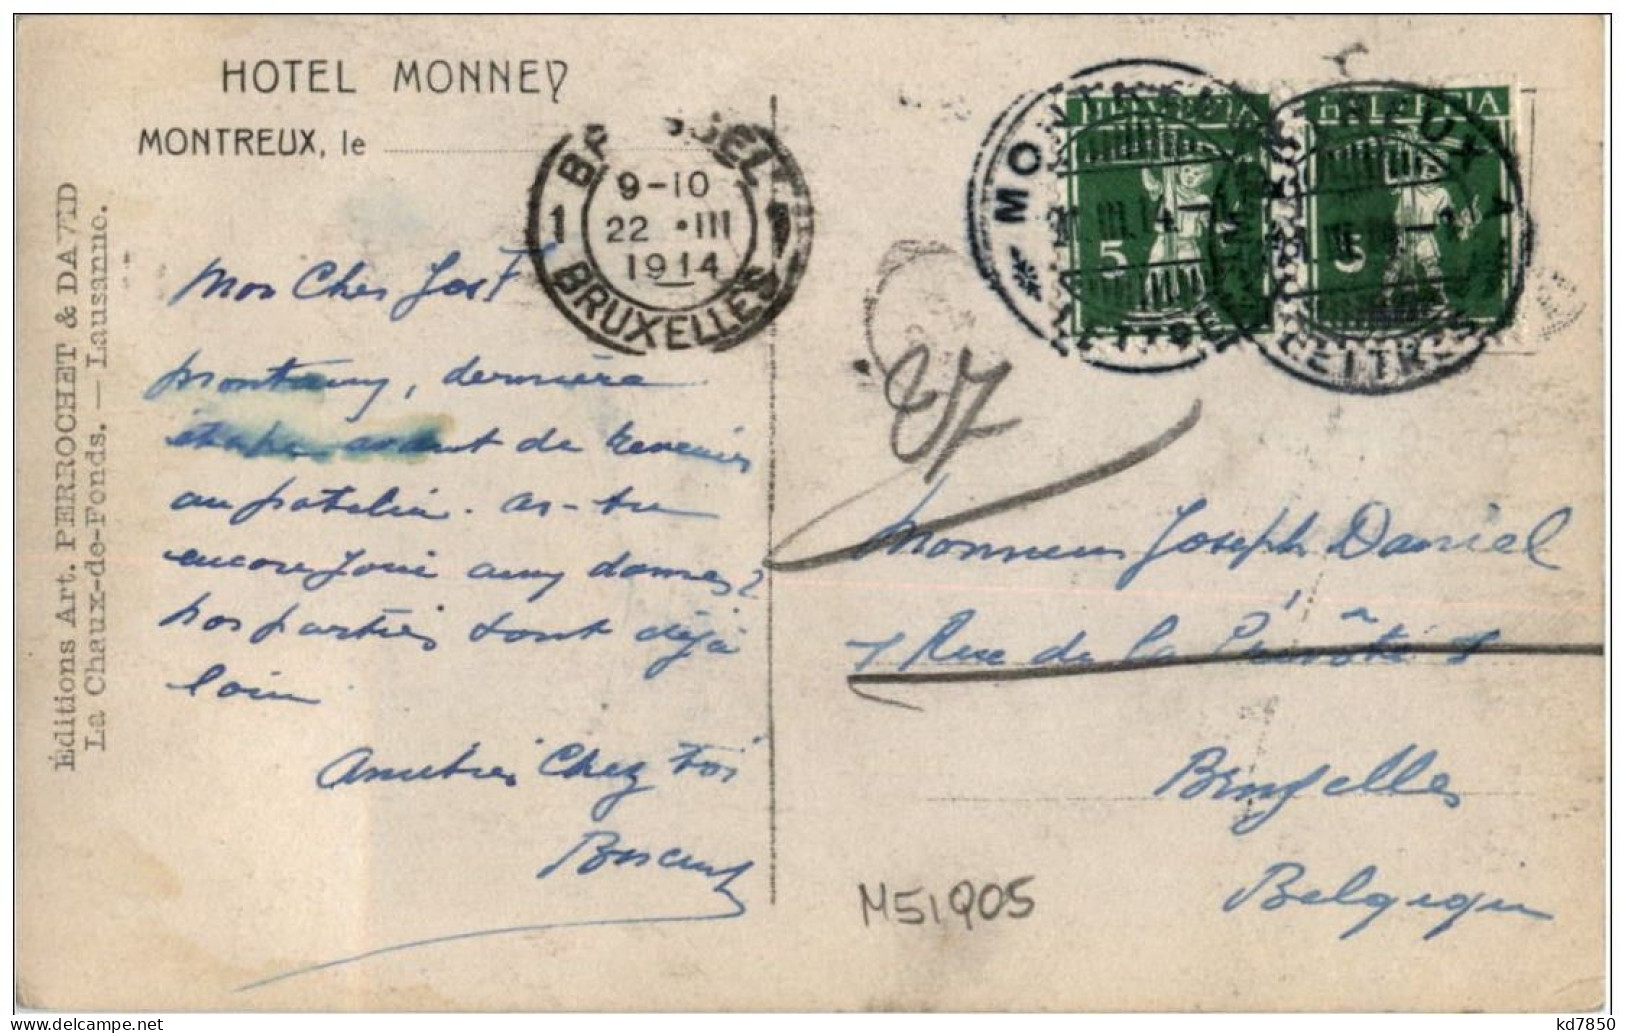 HOTEL MONNEY
MONTREUX, le
Éditions Art. PERROCHET & DAVID
La Chaux-de-Fonds. — Lausanne.
BR SSEL
1 9-10 1
22 • III
1914
BRUXELLES
MONTREUX
III.14
LETTRES
HELVETIA
5
MONTREUX 1
LETTRES
HELVETIA
5
Mon Cher Josef
Montreux, dernière
étape avant de revenir
au patelin. as-tu
encore joué aux dames?
nos parties sont déjà
loin
Amitiés chez toi
Monsieur Joseph Daniel
7 Rue de la 8
Bruxelles
Belgique
M51905
kd7850